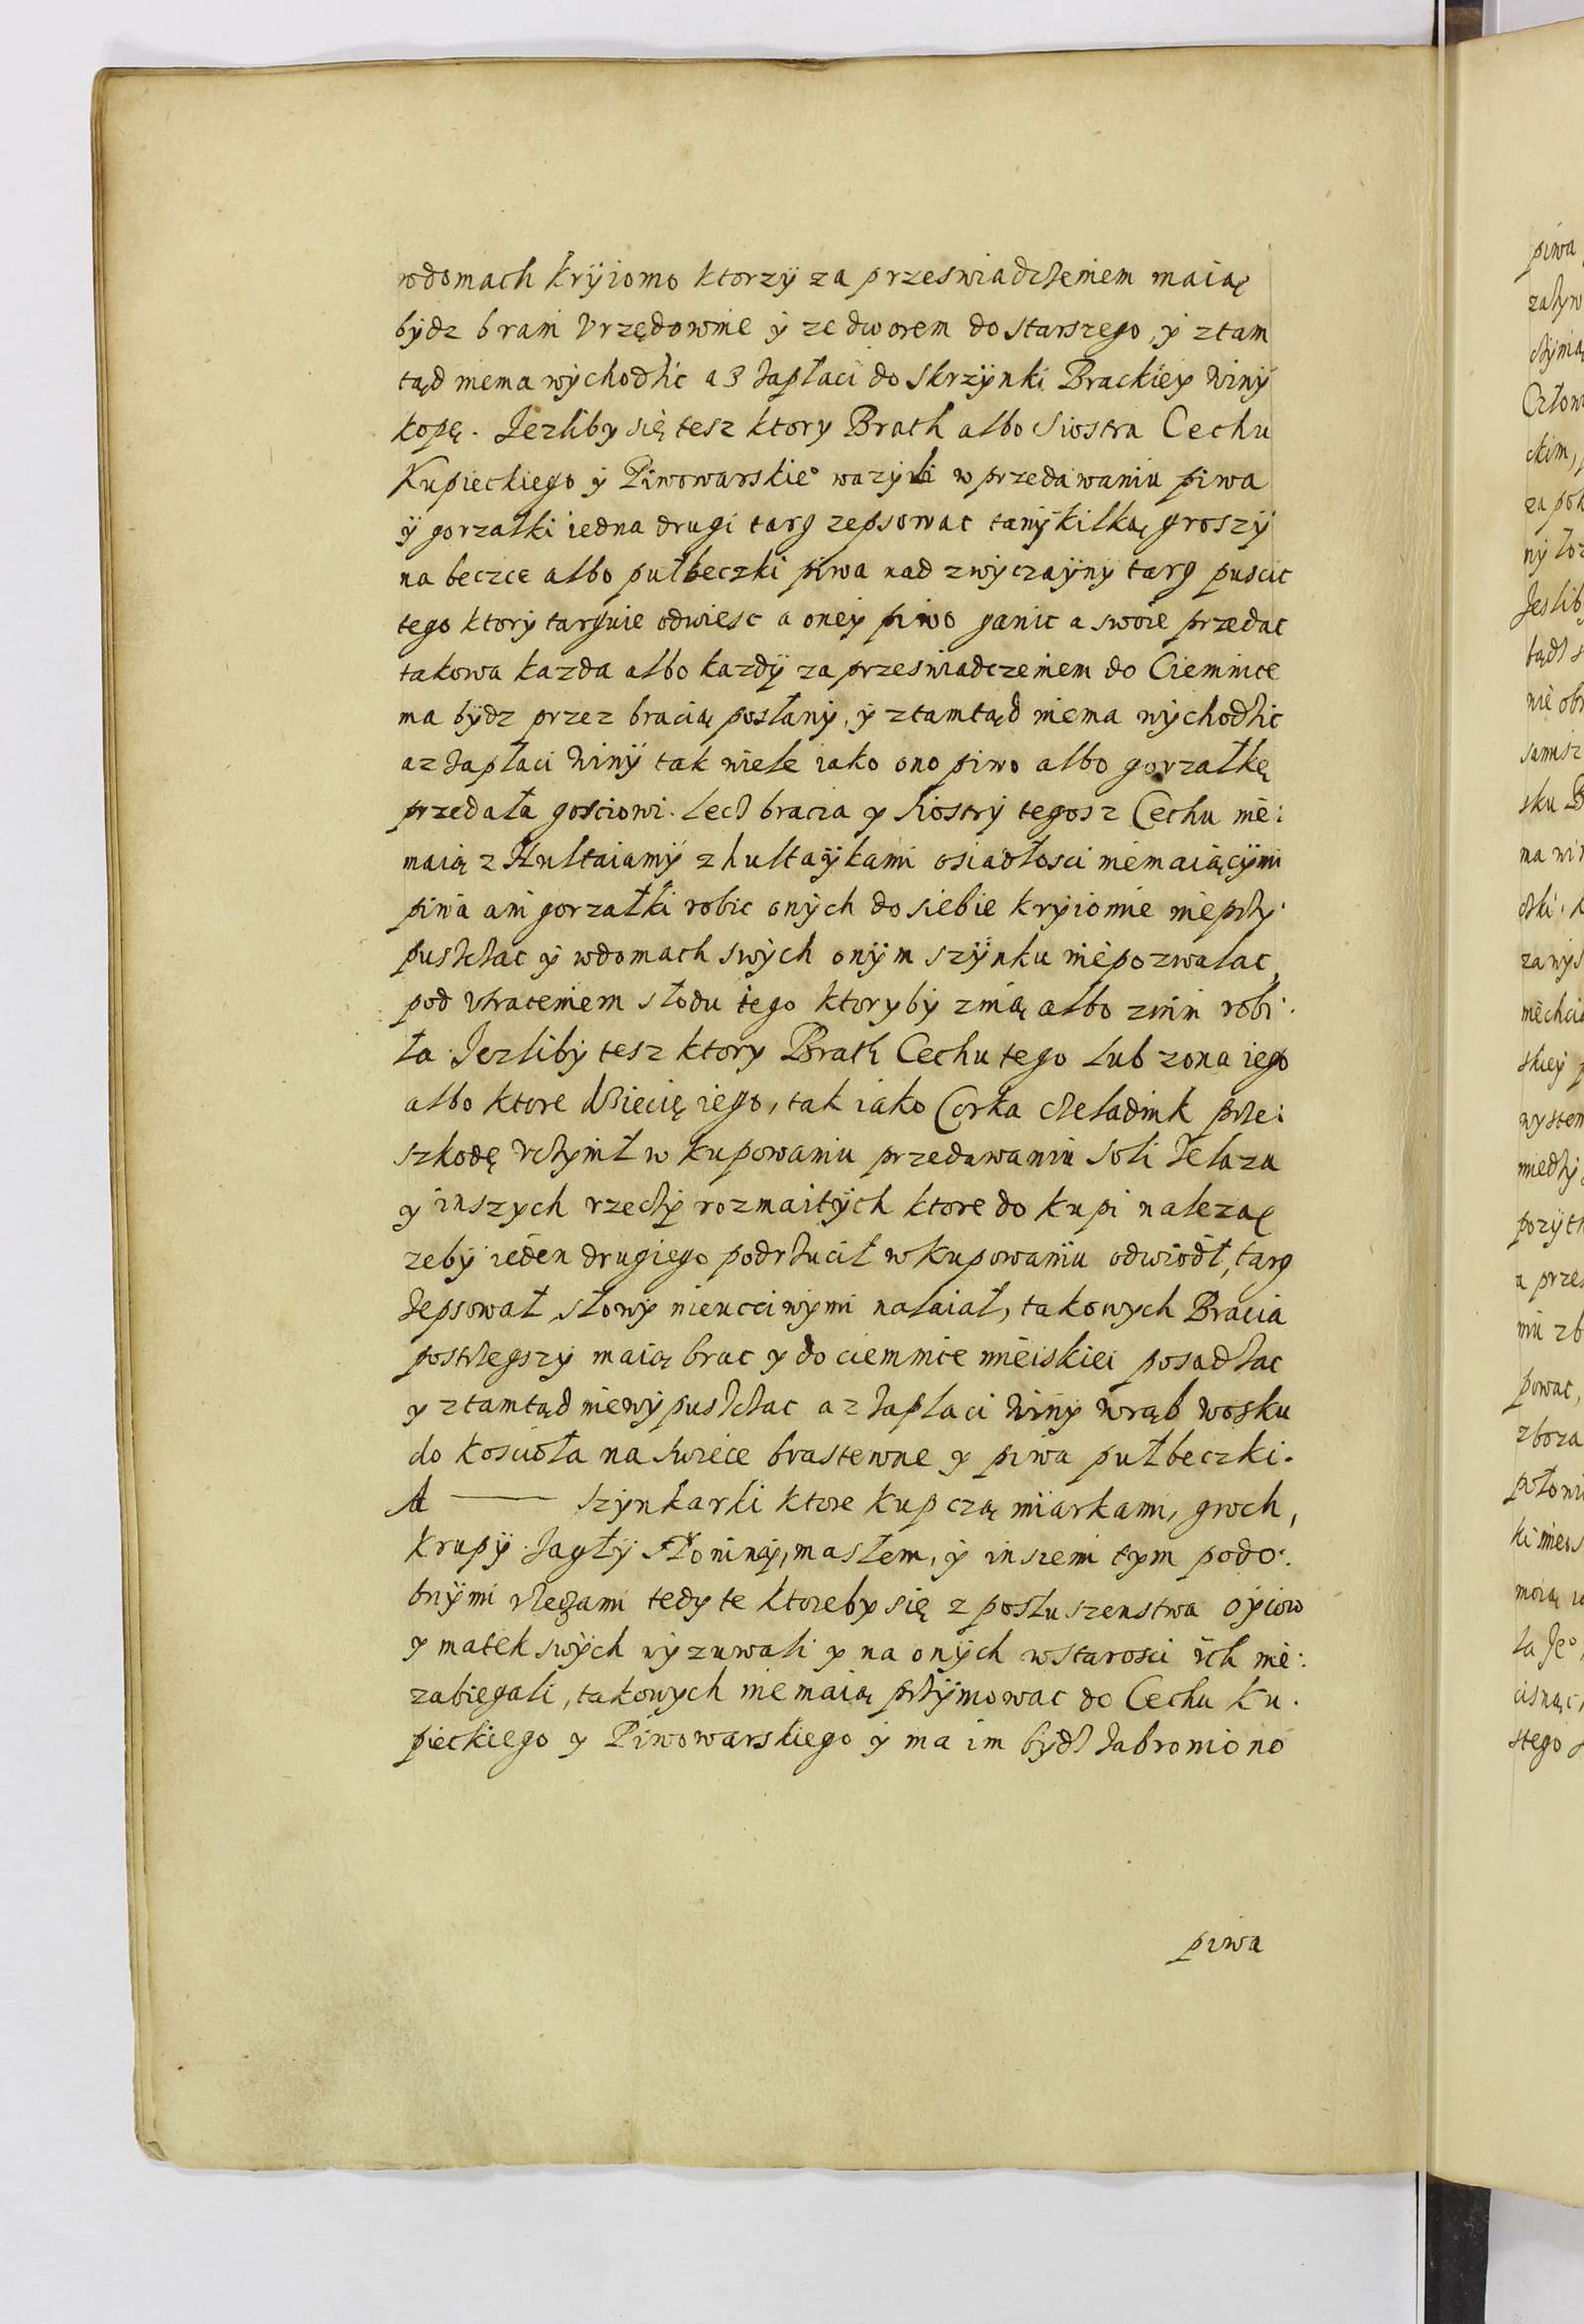 wdomach kryiomo ktorzy za przeswiadczeniem maią
bydz brani Vrzędownie y ze dworem do starszego, y ztam
tąd niema wychodzic a3 zapłaci do Skrzynki Brackiey winy
kopę. Jezliby się tesz ktory Brath albo Siostra Cechu
Kupieckiego y Piwowarskie° wazyli w przedawaniu piwa
y gorzałki iedna drugi targ zepsowac taniy kilką groszy
na beczce albo pułbeczki piwa nad zwyczayny targ puscic
tego ktory targuie odwiesc a oney piwo ganic a swoie przedac
takowa kazda albo kazdy za przeswiadczeniem do Ciemnice
ma bydz przez bracią posłany, y ztamtąd niema wychodzic
az zapłaci winy tak wiele iako ono piwo albo gorzałkę
przedała gosciowi. Lecz bracia y siostry tegosz Cechu nie:
maią z Hultaiamy z hultaykami osiadłosci niemaiącymi
piwa ani gorzałki robic onych do siebie kryiomie nieprzy:
puszczac y wdomach swych onym szynku niepozwalac,
pod vtraceniem słodu tego ktoryby znią albo znim robi:
ła. Jezliby tesz ktory Brath Cechu tego lub zona iego
albo ktore dziecię iego, tak iako Corka czeladnik prze:
szkodę vczynił w kupowaniu przedawaniu Soli zelaza
y inszych rzeczy rozmaitych ktore do kupi nalezą
zeby ieden drugiego podrzucił w kupowaniu odwiodł, targ
zepsował, słowy nieucciwymi nałaiał, takowych Bracia
postrzegszy maią brac y do ciemnice mieiskiei posadzac
y ztamtąd niewypuszczac az zapłaci winy wrąb wosku
do koscioła na swiece brastewne y piwa pułbeczki.
A —— szynkarki ktore kupczą miarkami, groch,
krupy Jagły słoniną, masłem, y inszemi tym podo:
bnymi rzeczami tedy te ktoreby się z posłuszenstwa oyców
y matek swych wyzuwali y na onych wstarosci ich nie:
zabiegali, takowych nie maią przymowac do Cechu Ku:
pieckiego y Piwowarskiego y ma im bydz zabroniono
piwa